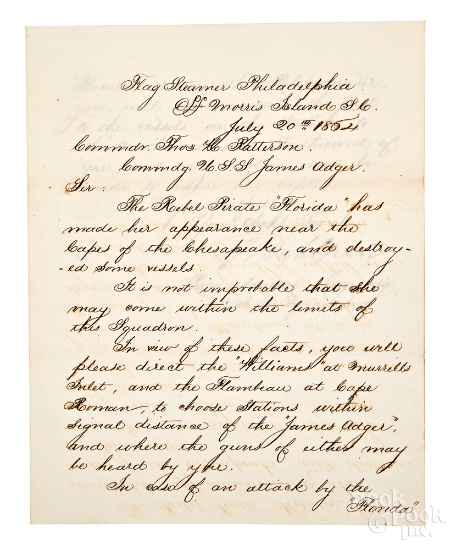 Flag Steamer Philadelphia
Off Morris Island S.C.
July 20th 1864
Commdr. Thos H. Patterson.
Commdg. U.S.S. James Adger.
Sir.
The Rebel Pirate "Florida" has
made her appearance near the
Capes of the Chesapeake, and destroy-
-ed some vessels.
It is not improbable that she
may come within the limits of
this Squadron.
In view of these facts, you will
please direct the "Williams" at Murrells
Inlet, and the Flambeau at Cape
Roman, to choose Stations within
signal distance of the "James Adger",
and where the guns of either may
be heard by you.
In case of an attack by the
"Florida"
Pook & Pook, Inc.